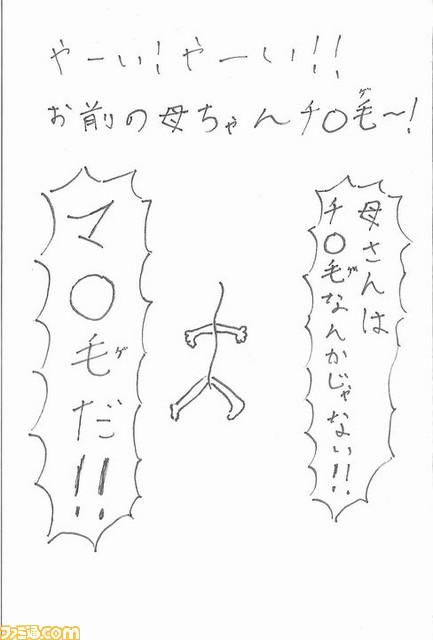 やーい!やーい!!
お前の母ちゃんチ〇毛〜!
ゲ
母さんは
チ〇毛なんかじゃない!!
ゲ
マ〇毛だ!!
ゲ
ファミ通.com